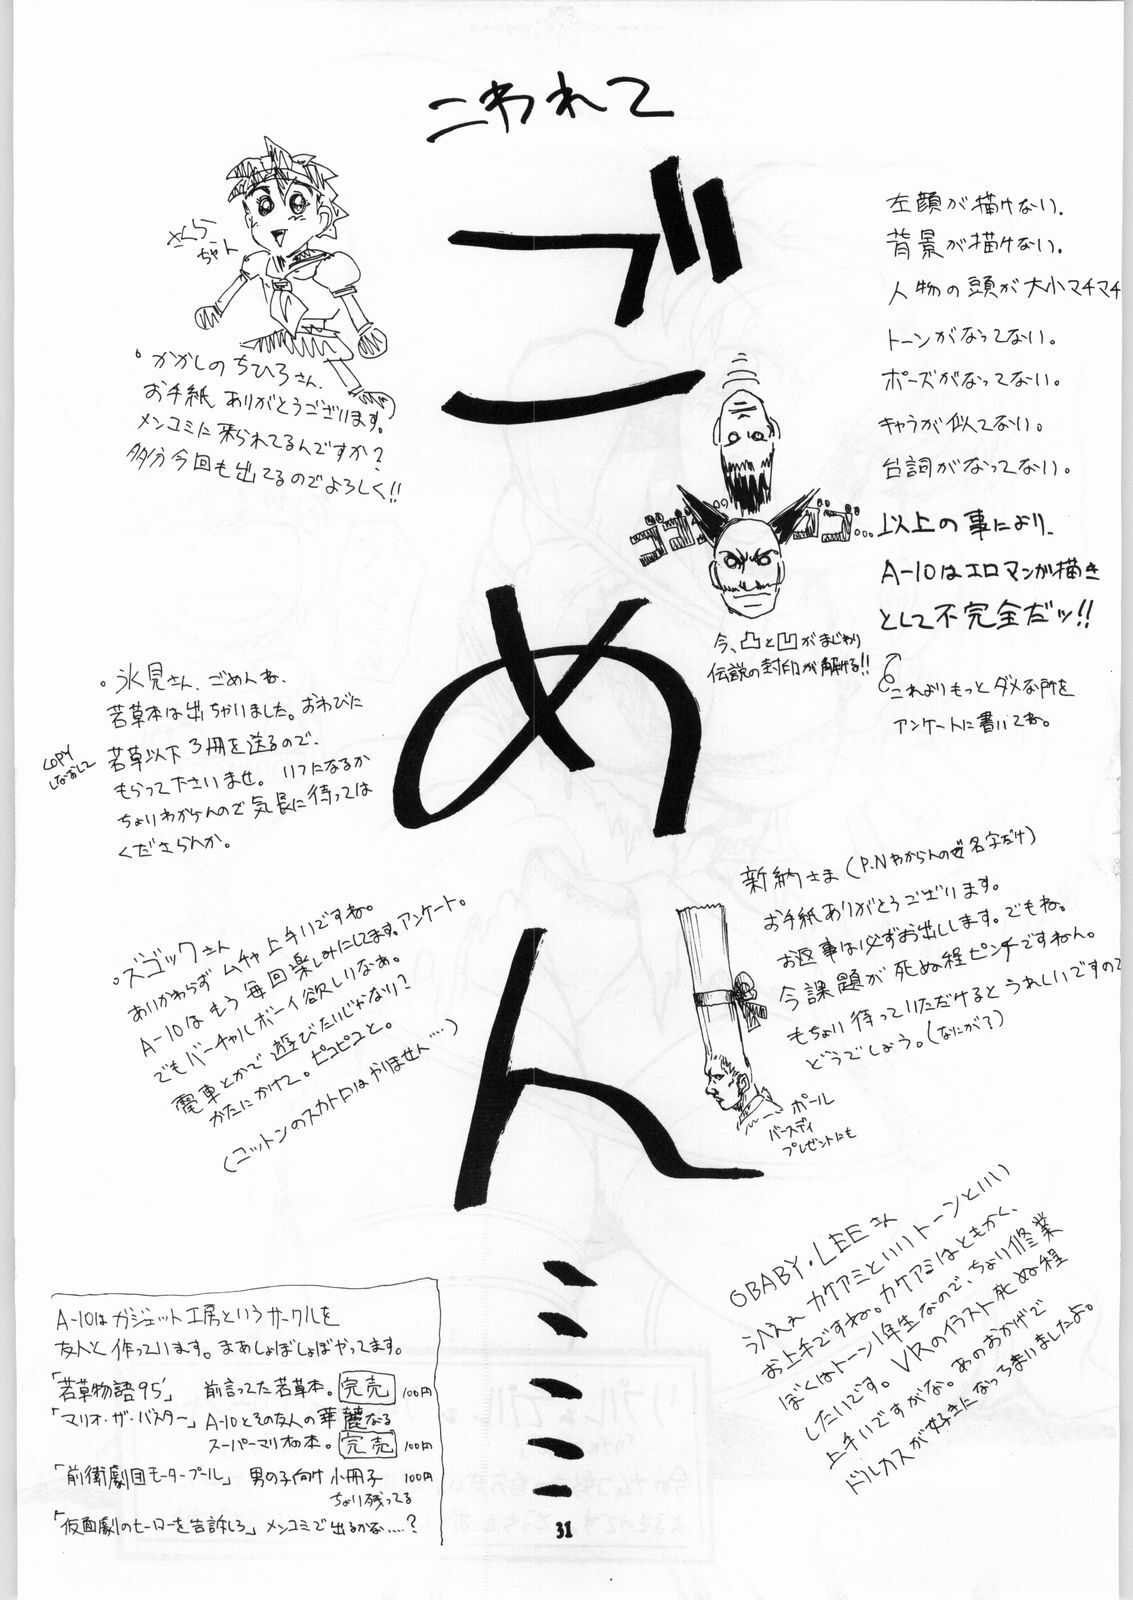 こわれて
ごめん……
さくらちゃん
。かかしのちひろさん、
お手紙ありがとうございます。
メンコミに来られてるんですか?
多分今回も出てるのでよろしく!!
左顔が描けない。
背景が描けない。
人物の頭が大小マチマチ
トーンがなってない。
ポーズがなってない。
キャラが似てない。
台詞がなってない。
以上の事により、
A-10はエロマンガ描き
として不完全だッ!!
これよりもっとダメな所を
アンケートに書いてね。
ゴゴ
ゴゴ…
今、凸と凹がまじわり
伝説の封印が解ける!!
。氷見さん、ごめんね。
若草本は出ちがいました。おわびに
COPY
しなおして
若草以下3冊を送るので、
もらって下さいませ。いつになるか
ちょいわからんので気長に待っては
くださらんか。
。ズゴックさん
あいかわらずムチャ上手いですね。
A-10はもう毎回楽しみにしてます。アンケート。
でもバーチャルボーイ欲しいなぁ。
電車とかで遊びたいじゃない?
かたにかけて。ピコピコと。
(コットンのスカトロはやりません……)
新納さま(P.Nわからんので名字だけ)
お手紙ありがとうございます。
お返事は必ずお出しします。でもね。
今課題が死ぬ程ピンチですねん。
もちょい待っていただけるとうれしいですので
どうでしょう。(なにが?)
ポール
バースディ
プレゼントにも
OBABY・LEEさん
うひえぇカケアミといいトーンといい
お上手ですね。カケアミはともかく、
ぼくはトーン1年生なので、ちょい修業
したいです。VRのイラスト死ぬ程
上手いですがな。あのおかげで
ドルカスが好きになっちまいましたよ。
A-10はガジェット工房というサークルを
友人と作っています。まあしょぼしょぼやってます。
「若草物語95'」 前言ってた若草本。完売 100円
「マリオ・ザ・バスター」 A-10とその友人の華麗なる
スーパーマリオの本。完売 100円
「前衛劇団モータープール」 男の子向け小冊子 100円
ちょい残ってる
「仮面劇のヒーローを告訴しろ」メンコミで出るかな……?
31